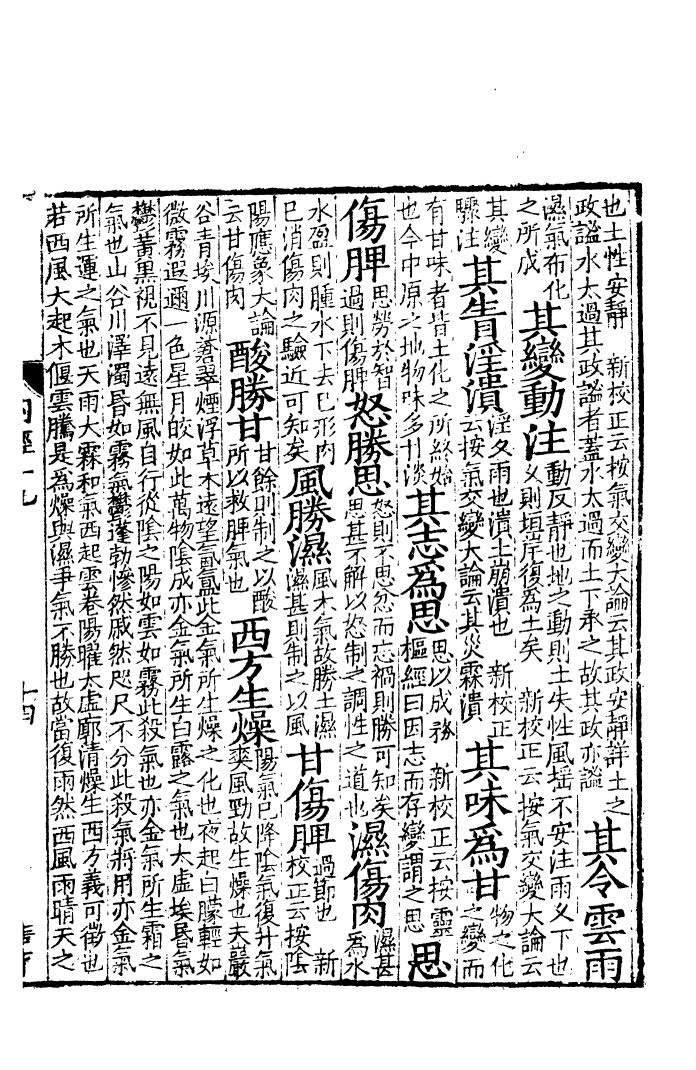 也土性安靜　新校正云按氣交變大論云其政安靜詳土之政謐水太過其政謐者蓋水太過而土下承之故其政亦謐其令雲雨
濕氣布化之所成其變動注動反靜也地之動則土失性風揺不安注雨久下也久則垣岸復為土矣　新校正云按氣交變大論云
其變驟注其眚淫潰淫久雨也潰土崩潰也　新校正云按氣交變大論云其災霖潰其味為甘物之化之變而
有甘味者皆土化之所終始也今中原之地物味多甘淡其志為思思以成務　新校正云按靈樞經曰因志而存變謂之思思
傷脾思勞於智過則傷脾怒勝思怒則不思忿而忘禍則勝可知矣思甚不解以怒制之調性之道也濕傷肉濕甚為水
水盈則腫水下去已形肉已消傷肉之驗近可知矣風勝濕風木氣故勝土濕濕甚則制之以風甘傷脾過節也　新校正云按陰
陽應象大論云甘傷肉酸勝甘甘餘則制之以酸所以救脾氣也西方生燥陽氣已降陰氣復升氣爽風勁故生燥也夫巖
谷青埃川源蒼翠煙浮草木遠望氤氳此金氣所生燥之化也夜起白朦輕如
微霧遐邇一色星月皎如此萬物陰成亦金氣所生白露之氣也太虛埃昏氣
鬱黃黑視不見遠無風自行從陰之陽如雲如霧此殺氣也亦金氣所生霜之
氣也山谷川澤濁昏如霧氣鬱蓬勃慘然戚然咫尺不分此殺氣將用亦金氣
所生運之氣也天雨大霖和氣西起雲卷陽曜太虛廓清燥生西方義可徵也
若西風大起木偃雲騰是為燥與濕爭氣不勝也故當復雨然西風雨晴天之
內經十九
十四